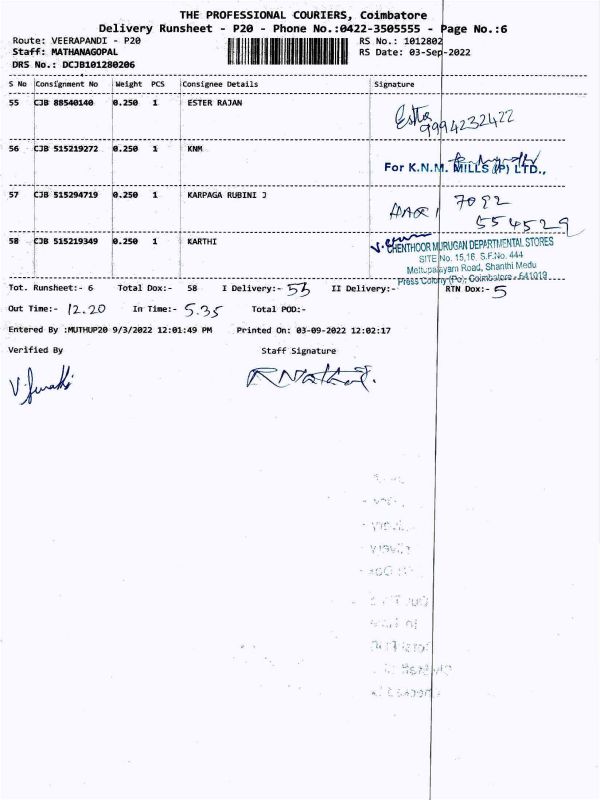 THE PROFESSIONAL COURIERS, Coimbatore
Delivery Runsheet - P20 - Phone No.:0422-3505555 - Page No.:6
Route: VEERAPANDI - P20 RS No.: 1012802
Staff: MATHANAGOPAL RS Date: 03-Sep-2022
DRS No.: DCJB101280206
S No Consignment No Weight PCS Consignee Details Signature
55 CJB 88540140 0.250 1 ESTER RAJAN
Ester
9994232422
56 CJB 515219272 0.250 1 KNM
For K.N.M. MILLS (P) LTD.,
57 CJB 515294719 0.250 1 KARPAGA RUBINI J
HARI 7092
554529
58 CJB 515219349 0.250 1 KARTHI
CHENTHOOR MURUGAN DEPARTMENTAL STORES
SITE No. 15,16, S.F.No. 444
Mettupalayam Road, Shanthi Medu
Press Colony (Po), Coimbatore - 641019
Tot. Runsheet:- 6 Total Dox:- 58 I Delivery:- 53 II Delivery:- RTN Dox:- 5
Out Time:- 12.20 In Time:- 5.35 Total POD:-
Entered By :MUTHUP20 9/3/2022 12:01:49 PM Printed On: 03-09-2022 12:02:17
Verified By Staff Signature